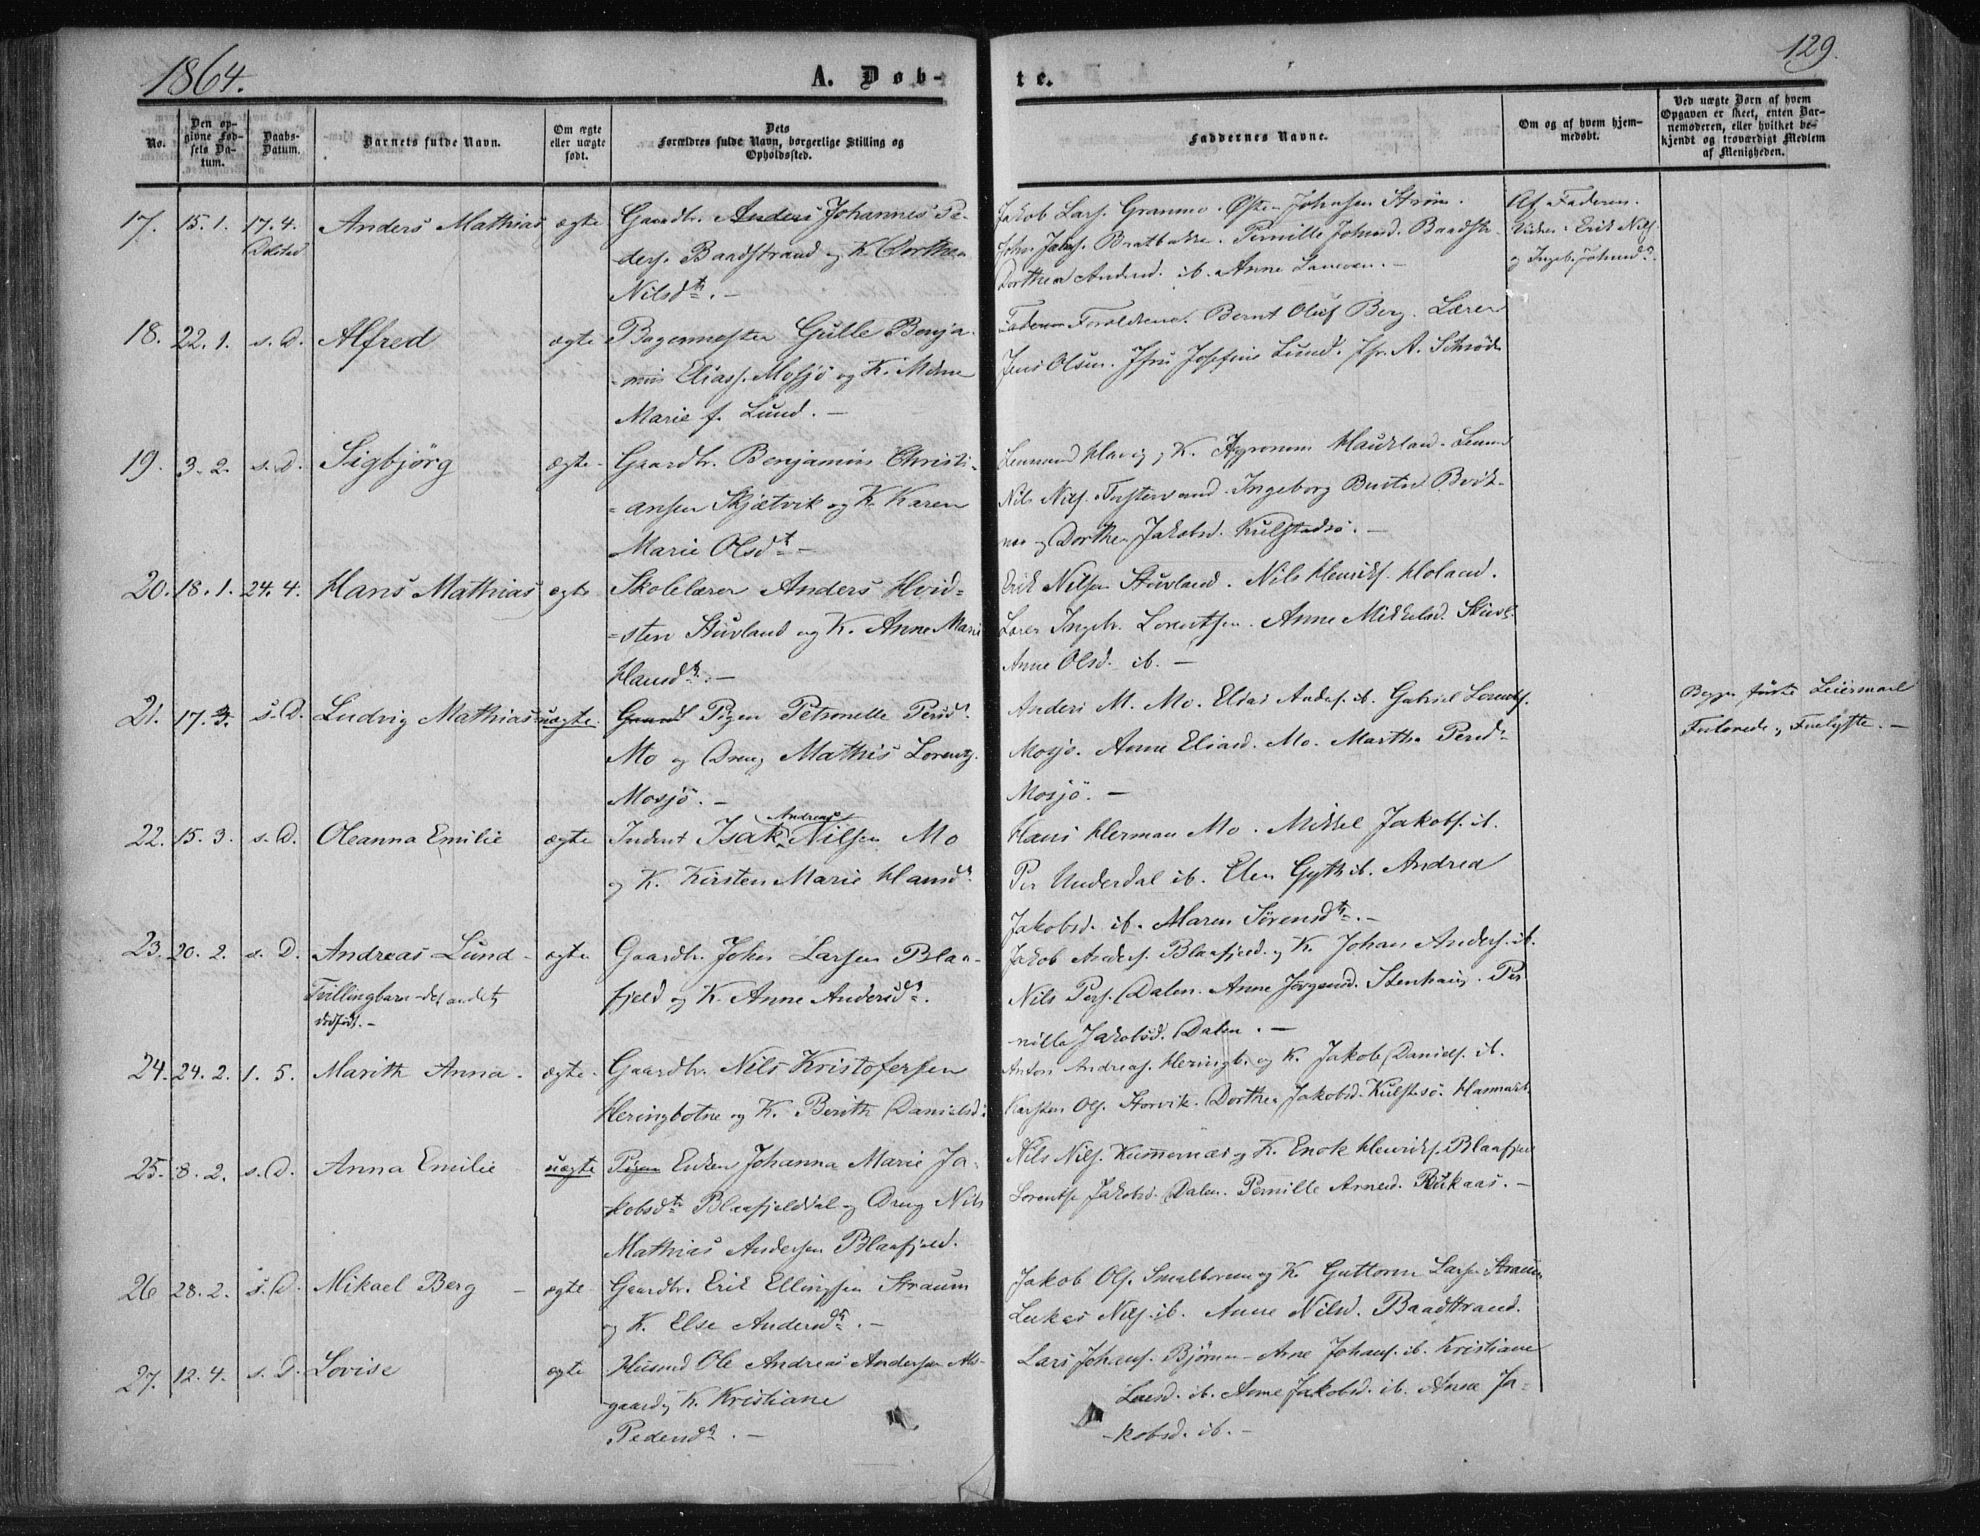 1864.
A. Døb-
te.
129.
No.
Den op-
givne Fød-
sels Da-
tum.
Daabs-
Datum.
Barnets fulde Navn.
Om ægte
eller uægte
født.
Dets
Forældres fulde Navn, borgerlige Stilling og
Opholdssted.
Faddernes Navne.
Om og af hvem hjem-
medøbt.
Ved uægte Børn af hvem
Opgaven er skeet, enten Bar-
nemoderen, eller hvilket be-
kjendt og troværdigt Medlem
af Menigheden.
17. 15. 1. 17. 4. Anders Mathias ægte Gaardbr. Anders Johannes Pe-
Dolstad
ders. Baadstrand og K. Dorthea
Nilsdtr. -
Jakob Lars. Granmo. Østen Johnsen Strøm.
Johns. Bratbakke. Pernille Johnsd. Baadstr.
Dorthea Andersd. ib. Anne
Af Faderen.
Vidner: Erik Nils.
og Ingeb. Johnsd.
18. 22. 1. s. D. Alfred ægte Bagermester Gulle Benja-
min Eliass. Mosjö og K.
Marie f. Lund. -
Forældrene. Bernt Oluf Berg. Lærer
Jens Olsen. Jfru Josefine Lund. Jfr. A. Schrøder
19. 3. 2. s. D. Sigbjörg ægte. Gaardbr. Benjamin Christi-
= ansen Skjætvik og K. Karen
Marie Olsdtr. -
og K.
Nils Nils. Ingeborg
og Dorthea Jakobsd. Kulstadsö. -
20. 18. 1. 24. 4. Hans Mathias ægte Skolelærer Anders Hvid=
=sten Stuvland og K. Anne Marie
Hansdr. -
Erik Nilsen Stuvland. Nils Henriks. Holand.
Lærer Ingebr. Lorentsen. Anne Mikkelsd. Stuvl.
Anne Olsd. ib. -
21. 17. 3. s. D. Ludvig Mathias uægte. Pigen Petronelle Persd.
Mo og Dreng Mathis Lorentz.
Mosjö. -
Anders M. Mo. Elias Anders. ib. Gabriel Lorents.
Mosjö. Anne Eliasd. Mo. Martha Persd.
Mosjö. -
Begges første Leiermaal
Forlovede, -
22. 15. 3. s. D. Oleanna Emilie ægte Inderst Isak Andreas Nilsen Mo
og K. Kirsten Marie Hansd.
Hans Herman Mo. Mikkel Jakobs. ib.
Per Underdal ib. Elen Gyth ib. Andrea
Jakobsd. ib. Maren Sörensdtr. -
23. 20. 2. s. D. Andreas Lund - ægte Gaardbr. Johan Larsen Blaa-
Tvillingbarn - det andet
dødfødt. -
fjeld og K. Anne Andersdr.
Jakob Anders. Blaafjeld. og K. Johan Anders. ib.
Nils Pers. Dalen. Anne Jørgensd. Stenhaug. Per
nille Jakobsd. Dalen. -
24. 24. 2. 1. 5. Marith Anna. ægte. Gaardbr. Nils Kristofersen
Heringbotne og K. Berith Danielsd.
Anton Andreas. Heringb. og K. Jakob Daniels. ib.
Karsten Ols. Storvik. Dorthea Jakobsd. Kulstsö.
25. 8. 2. s. D. Anna Emilie uægte Enken Johanna Marie Ja-
kobsdtr. Blaafjelddal og Dreng Nils
Mathias Andersen Blaafjeld.
Nils Nils. Kummernæs og K. Enok Henriks. Blaafjeld
Jakobsd. Dalen. Pernille Arnesd. -
26 28. 2. s. D. Mikael Berg - ægte Gaardbr. Erik Ellingsen Straum
og K. Else Andersdtr. -
Jakob Ols. og K. Guttorm Larsen Straum
Lukas Nils. ib. Anne Nilsd. Baadstrand.
27. 12. 4. s. D. Lovise ægte Husmd Ole Andreas Andersen Als-
gaard, K. Kristiane
Pedersd. -
Lars Johans. Björnn - Arne Johans. ib. Kristiane
Larsd. ib. Anne Jakobsd. ib. Anna Ja-
-kobsd. ib. -